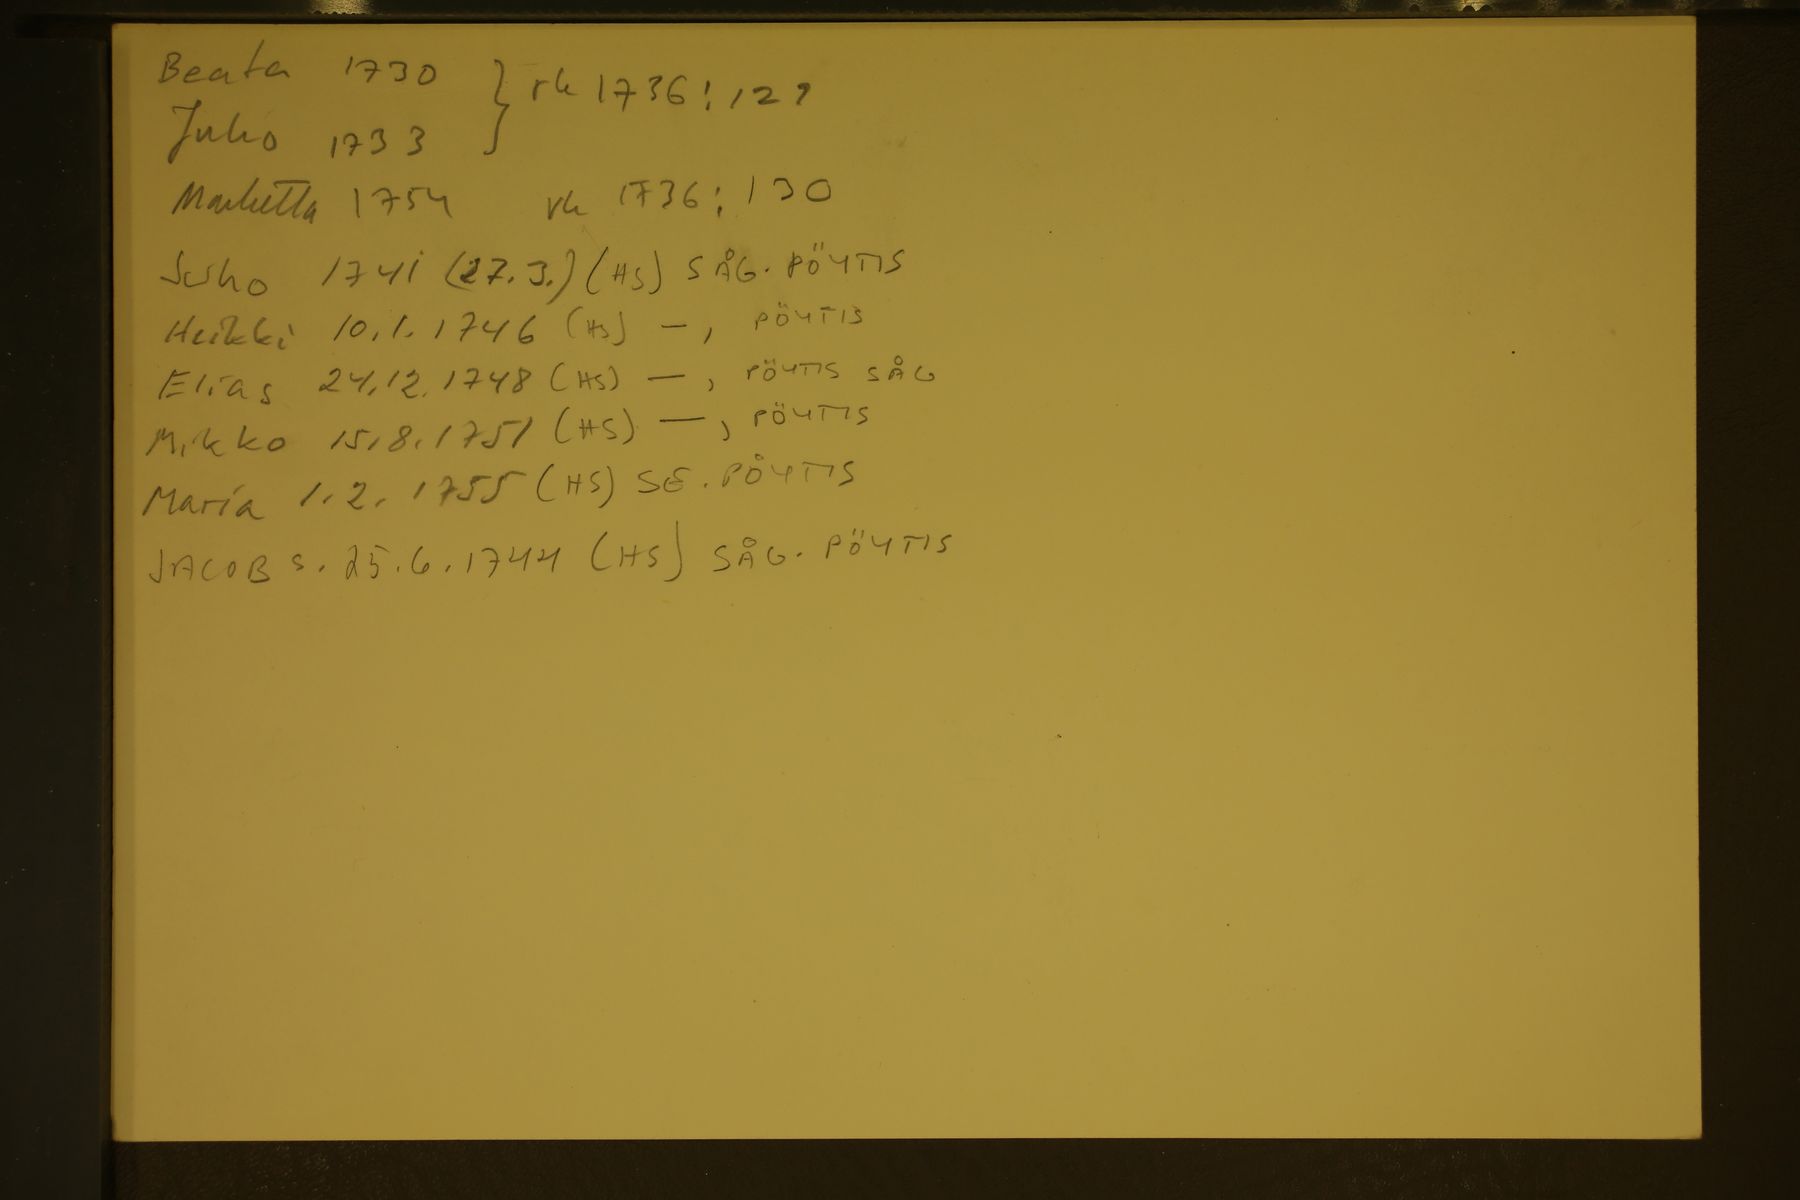 Beata 1730 } rk 1736:129
Juho 1733
Marketta 1754 rk 1736:130
Juho 1741 (27.3.) (HS) SÅG. PÖYTIS
Heikki 10.1.1746 (HS) —, PÖYTIS
Elias 24.12.1748 (HS) —, PÖYTIS SÅG
Mikko 15.8.1751 (HS) —, PÖYTIS
Maria 1.2.1755 (HS) SE. PÖYTIS
JACOB s. 25.6.1744 (HS) SÅG. PÖYTIS